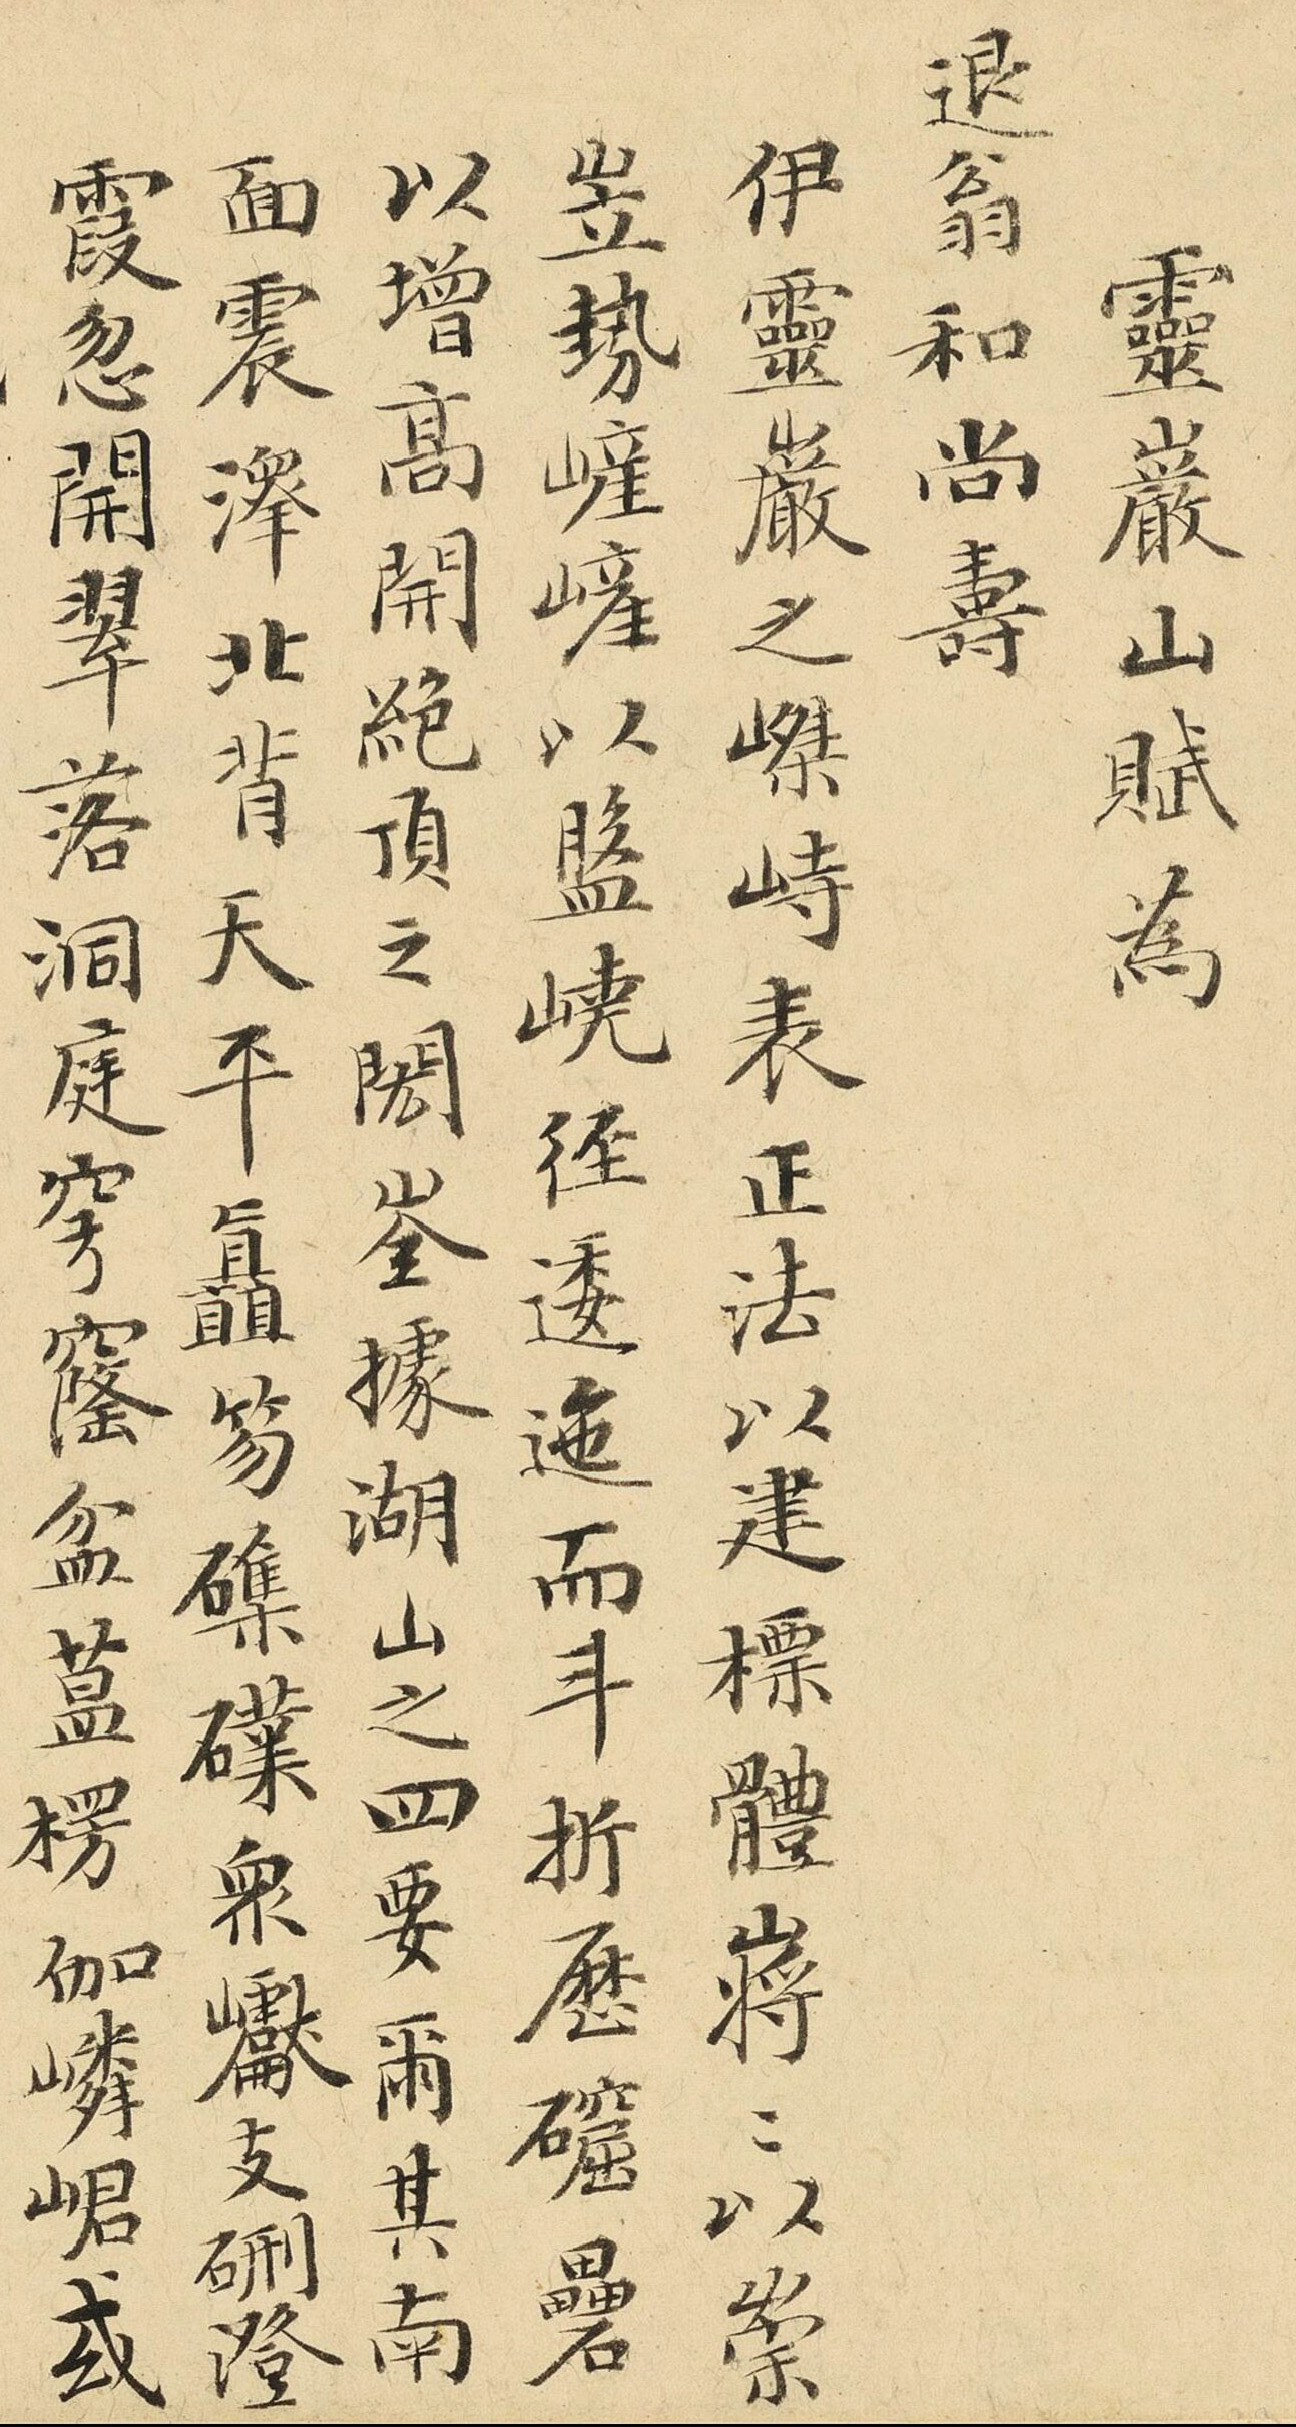 靈巖山賦為
退翁和尚壽
伊靈巖之嵥峙表正法以建標體嶈〻以崇
岦勢嵼嵼以盤嶢徑逶迤而斗折歷礭礨
以增高開絕頂之閎崟據湖山之四要爾其南
面震澤北背天平矗笏礁礏眾巘支硎澄
霞忽開翠落洞庭穹窿盆葢楞伽嶙峮或